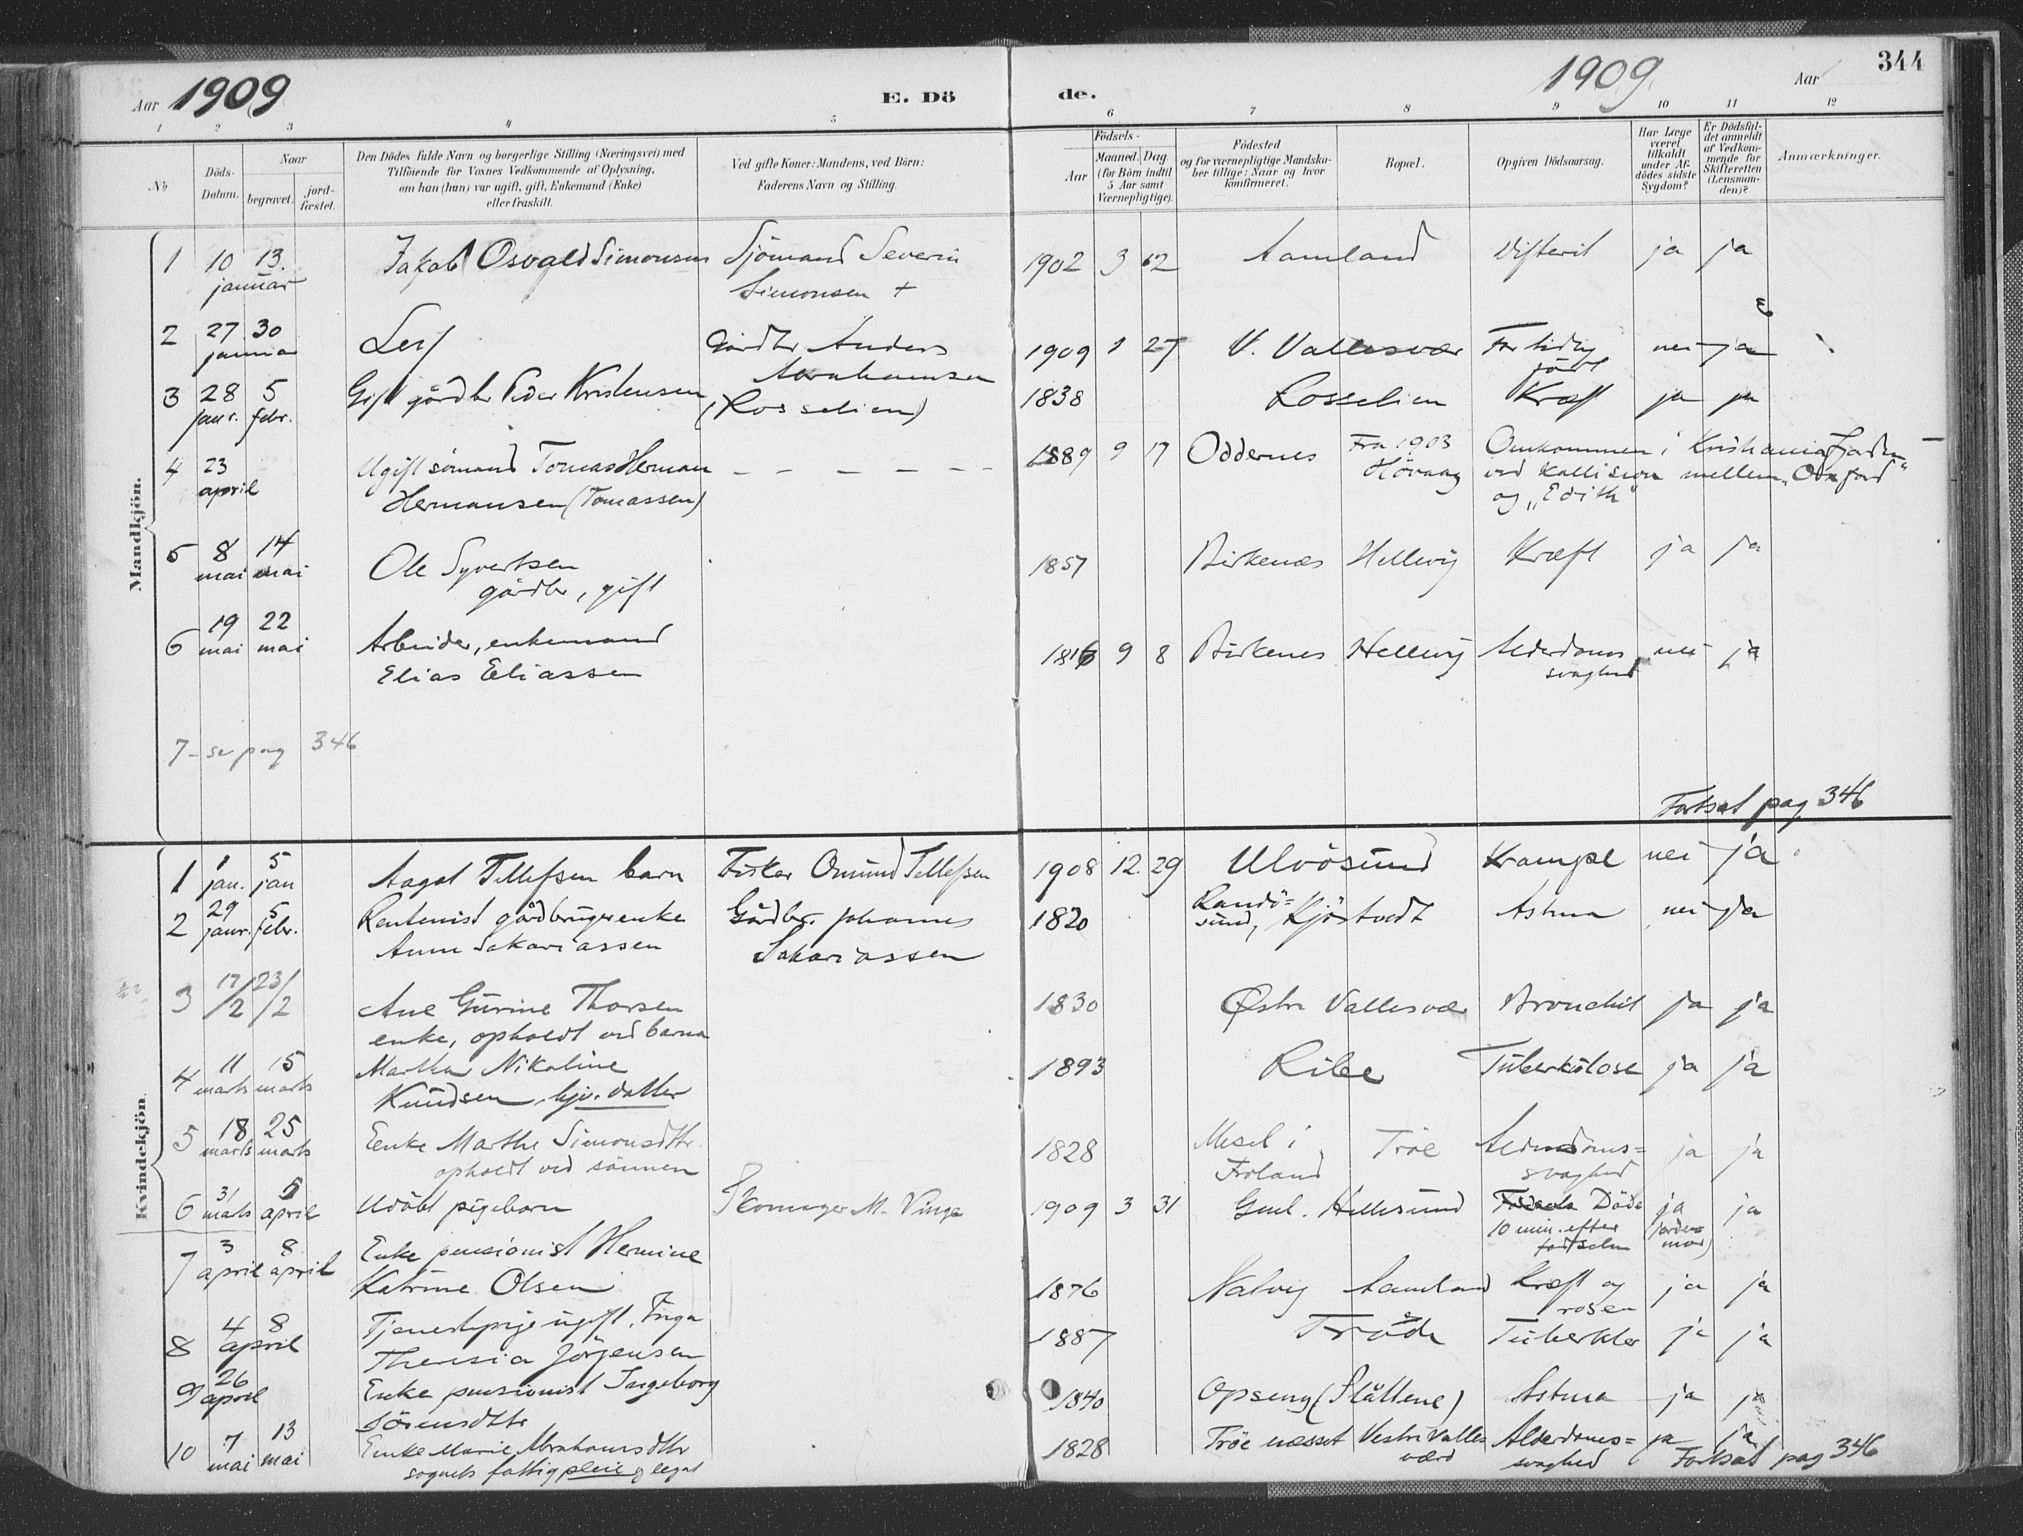 Aar 1909
E. Döde.
1909
Aar
344
1 2 3 4 5 6 7 8 9 10 11 12
No
Döds-Datum.
Naar
begravet.
jord-fæstet.
Den Dödes fulde Navn og borgerlige Stilling (Næringsvei) med
Tilföiende for Voxnes Vedkommende af Oplysning,
om han (hun) var ugift, gift, Enkemand (Enke)
eller fraskilt.
Ved gifte Koner: Mandens, ved Börn:
Faderens Navn og Stilling.
Födsels-
Aar
Maaned. Dag
(for Börn indtil
5 Aar samt
Værnepligtige).
Födested
og for værnepligtige Mandska-
ber tillige: Naar og hvor
konfirmeret.
Bopæl.
Opgiven Dödsaarsag.
Har Læge
været
tilkaldt
under Af-
dödes sidste
Sygdom?
Er Dödsfal-
det anmeldt
af Vedkom-
mende for
Skifteretten
(Lensman-
den)?
Anmærkninger.
Mandkjön.
1 10 13. Jakob Osvald Simonsen Sjömand Severin 1902 3 12 Aamland Difterit ja ja
januar Simonsen +
2 27 30 Leif Gårdbr Anders 1909 1 27 V. Vallesvær For tidlig nei ja
januar Abrahamsen född
3 28 5 Gift gårdbr Peder Kristensen (Rosselien) 1838 Rosselien Kræft ja ja
janr. febr.
4 23 Ugift sömand Tomas Herman – – – – – – 1889 9 17 Oddernes Fra 1903 Omkommen i Kristianiafjorden
april Hermansen (Tomassen) Hövaag ved Kollision mellem "Oxford"
og "Edith"
5 8 14 Ole Syvertsen 1857 Birkenæs Hellevig Kræft ja ja
mai mai gårdbr, gift
6 19 22 Arbeider, enkemand 1816 9 8 Birkenes Hellevig Alderdoms nei ja
mai mai Elias Eliassen svaghed
7 – se pag 346
Fortsat pag 346
Kvindekjön.
1 1 5 Aagot Tellefsen barn Fisker Omund Tellefsen 1908 12. 29 Ulvösund Krampe nei ja
jan. jan
2 29 5 Rentenist gårdbrugerenke Gårdbr. Johannes 1820 Randö- Kjöstvedt Astma nei ja
janr. febr. Anne Sakariassen Sakariassen sund,
3 17/2 23/2 Ane Gurine Thorsen 1830 Østre Vallesvær Bronchit ja ja
enke, opholdt ved barna
4 11 15 Martha Nikoline 1893 Ribe Tuberkulose ja ja
marts marts Knudsen, hjv. datter
5 18 25 Enke Marthe Simonsdtr. 1828 Mesel i Tröe Alderdoms= ja ja
marts marts opholdt ved sönnen Froland svaghed
6 31 5 Udöbt pigebarn Skomager M. Vinge 1909 3 31 Gml. Hellesund Döde ja ja
marts april 10 min. efter (jorde=
födselen mor)
7 3 8 Enke pensionist Hermine 1876 Nalvig Aamland Kræft og ja ja
april april Katrine Olsen rosen
8 4 8 Tjenestepige ugift. Inga 1887 Tuberkler ja ja
april Theresia Jörgensen
9 26 Enke pensionist Ingeborg 1840 Opseng (Slåttene) Astma ja ja
april Sörensdtr
10 7 13 Enke Marie Abrahamsdtr 1828 Tröe næsset Vestre Valles Alderdoms= ja ja
mai mai sognets fattigpleie & legat værd svaghed Fortsat pag 346